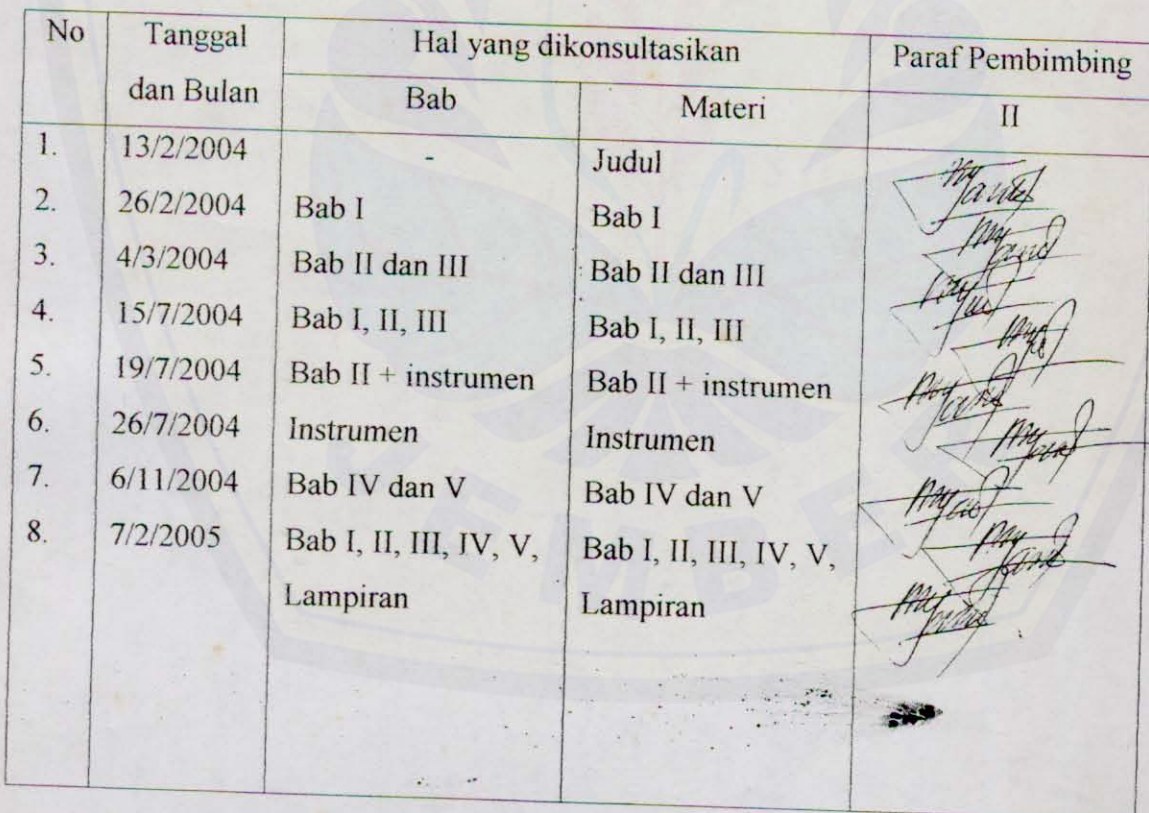 No Tanggal Hal yang dikonsultasikan Paraf Pembimbing
dan Bulan Bab Materi II
1. 13/2/2004 - Judul
2. 26/2/2004 Bab I Bab I
3. 4/3/2004 Bab II dan III Bab II dan III
4. 15/7/2004 Bab I, II, III Bab I, II, III
5. 19/7/2004 Bab II + instrumen Bab II + instrumen
6. 26/7/2004 Instrumen Instrumen
7. 6/11/2004 Bab IV dan V Bab IV dan V
8. 7/2/2005 Bab I, II, III, IV, V, Bab I, II, III, IV, V,
Lampiran Lampiran